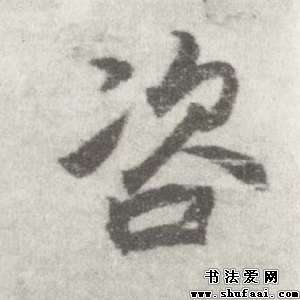 咨
书法爱网
www.shufaai.com